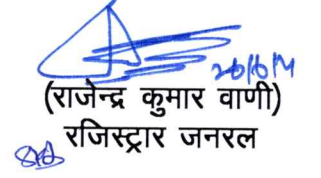 26/6/14
(राजेन्द्र कुमार वाणी)
रजिस्ट्रार जनरल